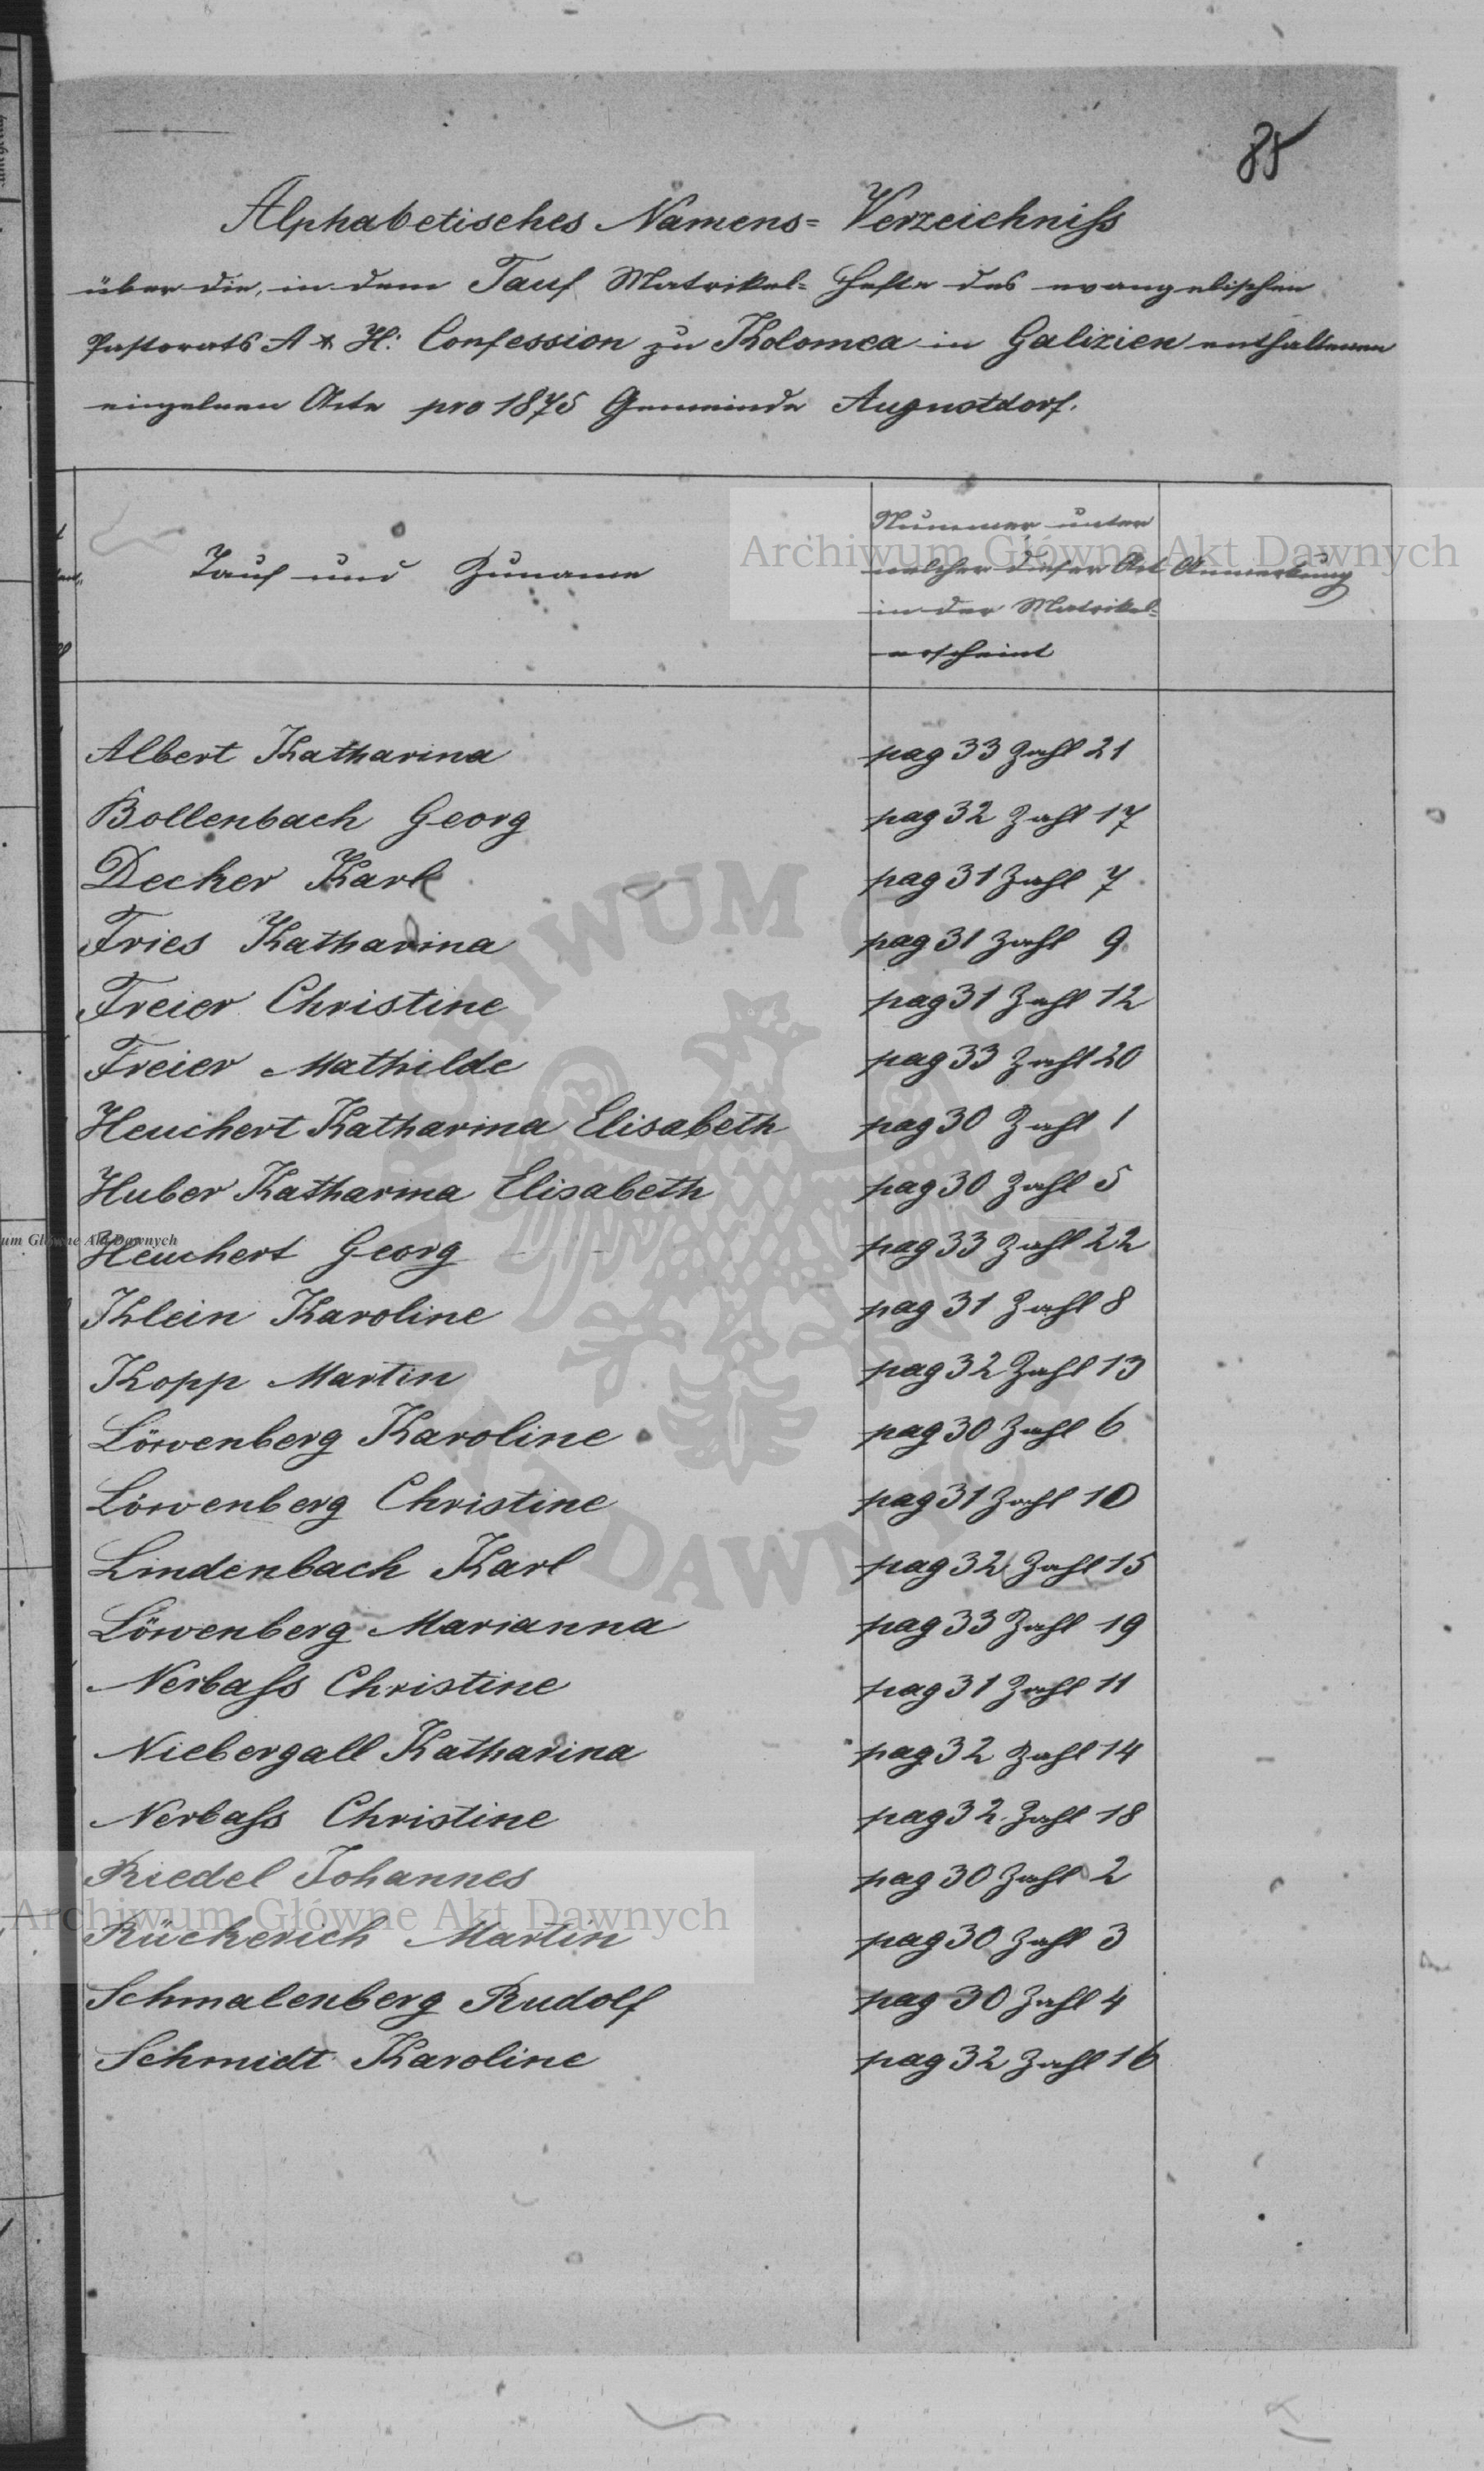 85
Alphabetisches Namens= Verzeichniss
über die, in dem Tauf Matrikel= Hefte des evangelischen
Pastorats A & H: Confession zu Kolomea in Galizien enthaltenen
einzelnen Acte pro 1875 Gemeinde Augustdorf.
Tauf und Zuname
Nummer unter
welcher dieser Act
in der Matrikel=
erscheint
Anmerkung
Archiwum Główne Akt Dawnych
Albert Katharina pag 33 Zahl 21
Bollenbach Georg pag 32 Zahl 17
Decker Karl pag 31 Zahl 7
Fries Katharina pag 31 Zahl 9
Freier Christine pag 31 Zahl 12
Freier Mathilde pag 33 Zahl 20
Heuchert Katharina Elisabeth pag 30 Zahl 1
Huber Katharina Elisabeth pag 30 Zahl 5
um Główne Akt Dawnych
Heuchert Georg pag 33 Zahl 22
Klein Karoline pag 31 Zahl 8
Kopp Martin pag 32 Zahl 13
Löwenberg Karoline pag 30 Zahl 6
Löwenberg Christine pag 31 Zahl 10
Lindenbach Karl pag 32 Zahl 15
Löwenberg Marianna pag 33 Zahl 19
Nerbass Christine pag 31 Zahl 11
Niebergall Katharina pag 32 Zahl 14
Nerbass Christine pag 32 Zahl 18
Riedel Johannes pag 30 Zahl 2
Archiwum Główne Akt Dawnych
Rückerich Martin pag 30 Zahl 3
Schmalenberg Rudolf pag 30 Zahl 4
Schmidt Karoline pag 32 Zahl 16